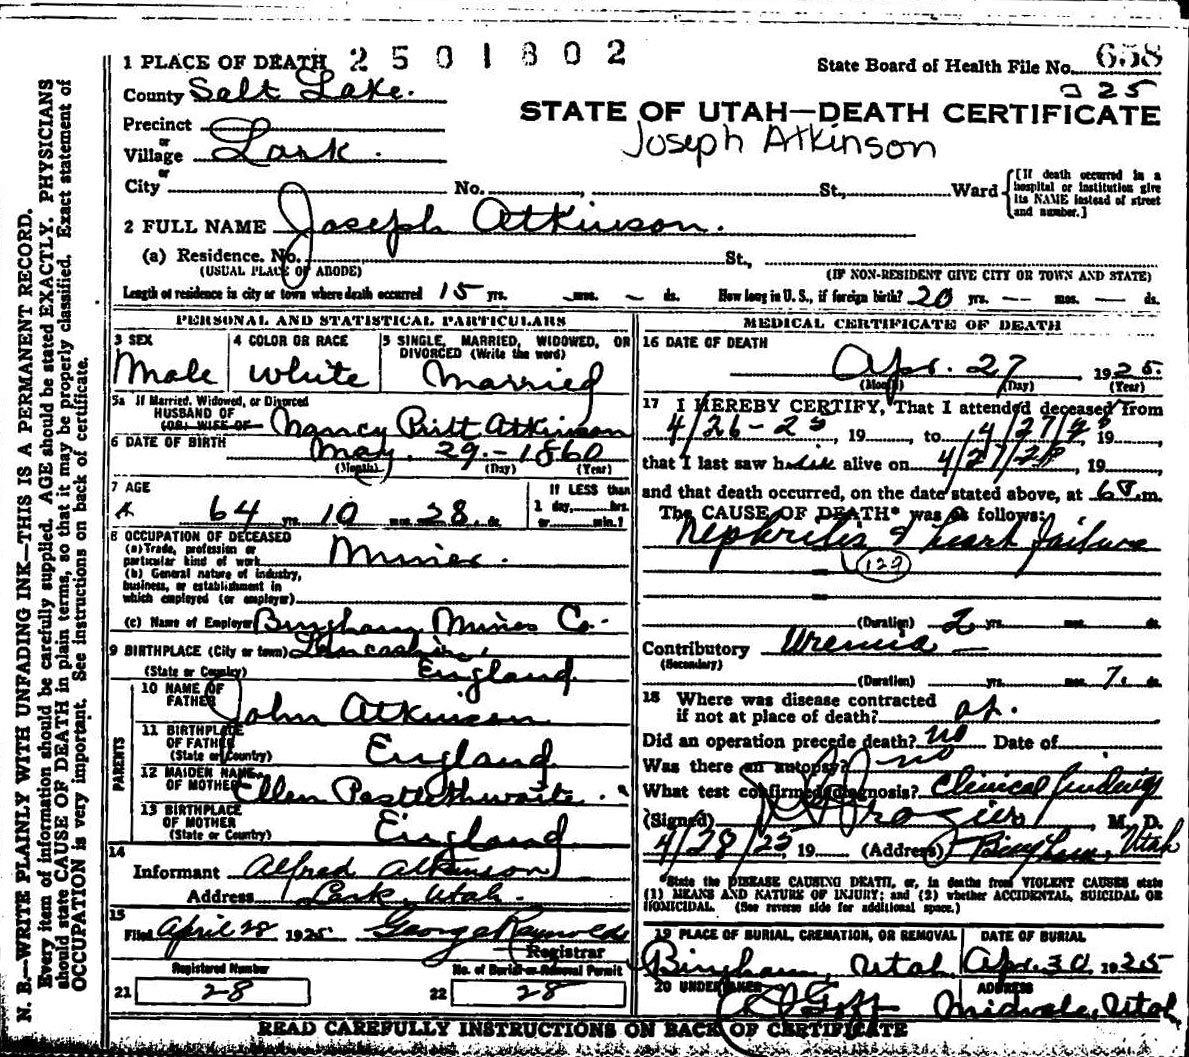 1 PLACE OF DEATH 2501802
State Board of Health File No. 658
225
County Salt Lake.
STATE OF UTAH—DEATH CERTIFICATE
Joseph Atkinson
Precinct
or
Village Lark.
or
City No. , St., Ward
[If death occurred in a hospital or institution give its NAME instead of street and number.]
2 FULL NAME Joseph Atkinson.
(a) Residence. No. St.,
(USUAL PLACE OF ABODE) (IF NON-RESIDENT GIVE CITY OR TOWN AND STATE)
Length of residence in city or town where death occurred 15 yrs. — mos. — ds. How long in U. S., if foreign birth? 20 yrs. — mos. — ds.
PERSONAL AND STATISTICAL PARTICULARS
3 SEX
Male
4 COLOR OR RACE
White
5 SINGLE, MARRIED, WIDOWED, OR
DIVORCED (Write the word)
Married
5a If Married, Widowed, or Divorced
HUSBAND OF
(OR) WIFE OF Nancy Pritt Atkinson
6 DATE OF BIRTH May. 29.—1860
(Month) (Day) (Year)
7 AGE
64 yrs. 10 mos. 28 ds.
If LESS than
1 day, hrs.
or min.?
8 OCCUPATION OF DECEASED
(a) Trade, profession or
particular kind of work Miner.
(b) General nature of industry,
business, or establishment in
which employed (or employer)
(c) Name of Employer Bingham Mines Co.
9 BIRTHPLACE (City or town) Lancashire,
(State or Country) England.
PARENTS
10 NAME OF
FATHER John Atkinson
11 BIRTHPLACE
OF FATHER
(State or Country) England
12 MAIDEN NAME
OF MOTHER Ellen Postlethwaite.
13 BIRTHPLACE
OF MOTHER
(State or Country) England
14
Informant Alfred Atkinson
Address Lark, Utah.
15
Filed April 28 1925 George Raynolds
Registrar
Registered Number No. of Burial or Removal Permit
21 28 22 28
MEDICAL CERTIFICATE OF DEATH
16 DATE OF DEATH
Apr. 27, 1925.
(Month) (Day) (Year)
17 I HEREBY CERTIFY, That I attended deceased from
4/26-25, 19 , to 4/27/25, 19 ,
that I last saw h alive on 4/27/25, 19 ,
and that death occurred, on the date stated above, at m.
The CAUSE OF DEATH* was as follows:
Nephritis & heart failure
129
(Duration) 2 yrs. mos. ds.
Contributory Uremia —
(Secondary)
(Duration) yrs. mos. 7. ds.
18 Where was disease contracted
if not at place of death?
Did an operation precede death? no Date of
Was there an autopsy? no
What test confirmed diagnosis? Clinical findings
(Signed) Frazier, M. D.
4/28/25, 19 (Address) Bingham, Utah
*State the DISEASE CAUSING DEATH, or, in deaths from VIOLENT CAUSES state
(1) MEANS AND NATURE OF INJURY; and (2) whether ACCIDENTAL, SUICIDAL OR
HOMICIDAL. (See reverse side for additional space.)
19 PLACE OF BURIAL, CREMATION, OR REMOVAL
Bingham, Utah
DATE OF BURIAL
Apr. 30, 1925
20 UNDERTAKER
Goff
ADDRESS
Midvale, Utah
READ CAREFULLY INSTRUCTIONS ON BACK OF CERTIFICATE
N. B.—WRITE PLAINLY WITH UNFADING INK—THIS IS A PERMANENT RECORD.
Every item of information should be carefully supplied. AGE should be stated EXACTLY. PHYSICIANS
should state CAUSE OF DEATH in plain terms, so that it may be properly classified. Exact statement of
OCCUPATION is very important. See instructions on back of certificate.